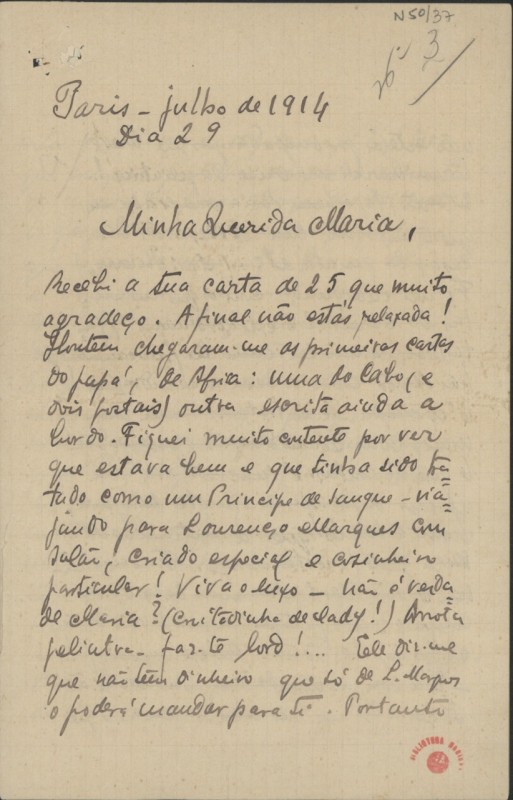 N50/37
3
Paris - julho de 1914
Dia 29
Minha Querida Maria,
Recebi a tua carta de 25 que muito
agradeço. Afinal não estás relaxada!
Hontem chegaram-me as primeiras cartas
do papá, de Africa: uma do Cabo (e
dois postais) outra escrita ainda a
bordo. Fiquei muito contente por ver
que estava bem e que tinha sido tra=
tado como um Principe de sangue - via=
jando para Lourenço Marques com
salão, criado especial e cosinheiro
particular! Viva o luxo - não é verda=
de Maria? (Coitadinha de lady!)
pelintra - faz-te lord!... Ele diz-me
que não tem dinheiro que só de L. Marques
o poderá mandar para ti. Portanto
BIBLIOTECA NACIONAL